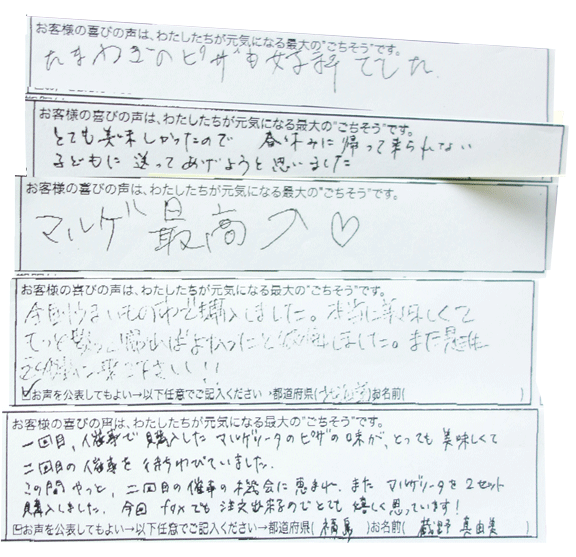 お客様の喜びの声は、わたしたちが元気になる最大の"ごちそう"です。
たまねぎのピザも好評でした
お客様の喜びの声は、わたしたちが元気になる最大の"ごちそう"です。
とても美味しかったので 春休みに帰って来られない
子どもに送ってあげようと思いました
お客様の喜びの声は、わたしたちが元気になる最大の"ごちそう"です。
マルゲ 最高 ♡
お客様の喜びの声は、わたしたちが元気になる最大の"ごちそう"です。
今回うまいもの で購入しました。本当に美味しくて
もっと 買えばよかったと しました。また是非
さい!!
お声を公表してもよい→以下任意でご記入ください→都道府県( )お名前( )
お客様の喜びの声は、わたしたちが元気になる最大の"ごちそう"です。
一回目、催事で購入したマルゲリータのピザの味が、とっても美味しくて
二回目の催事を待ちわびていました。
この間やっと、二回目の催事の機会に恵まれ、また マルゲリータを2セット
購入しました。今回 faxでも注文出来るのでとても嬉しく思っています!
お声を公表してもよい→以下任意でご記入ください→都道府県( 福島 )お名前( 真由美 )